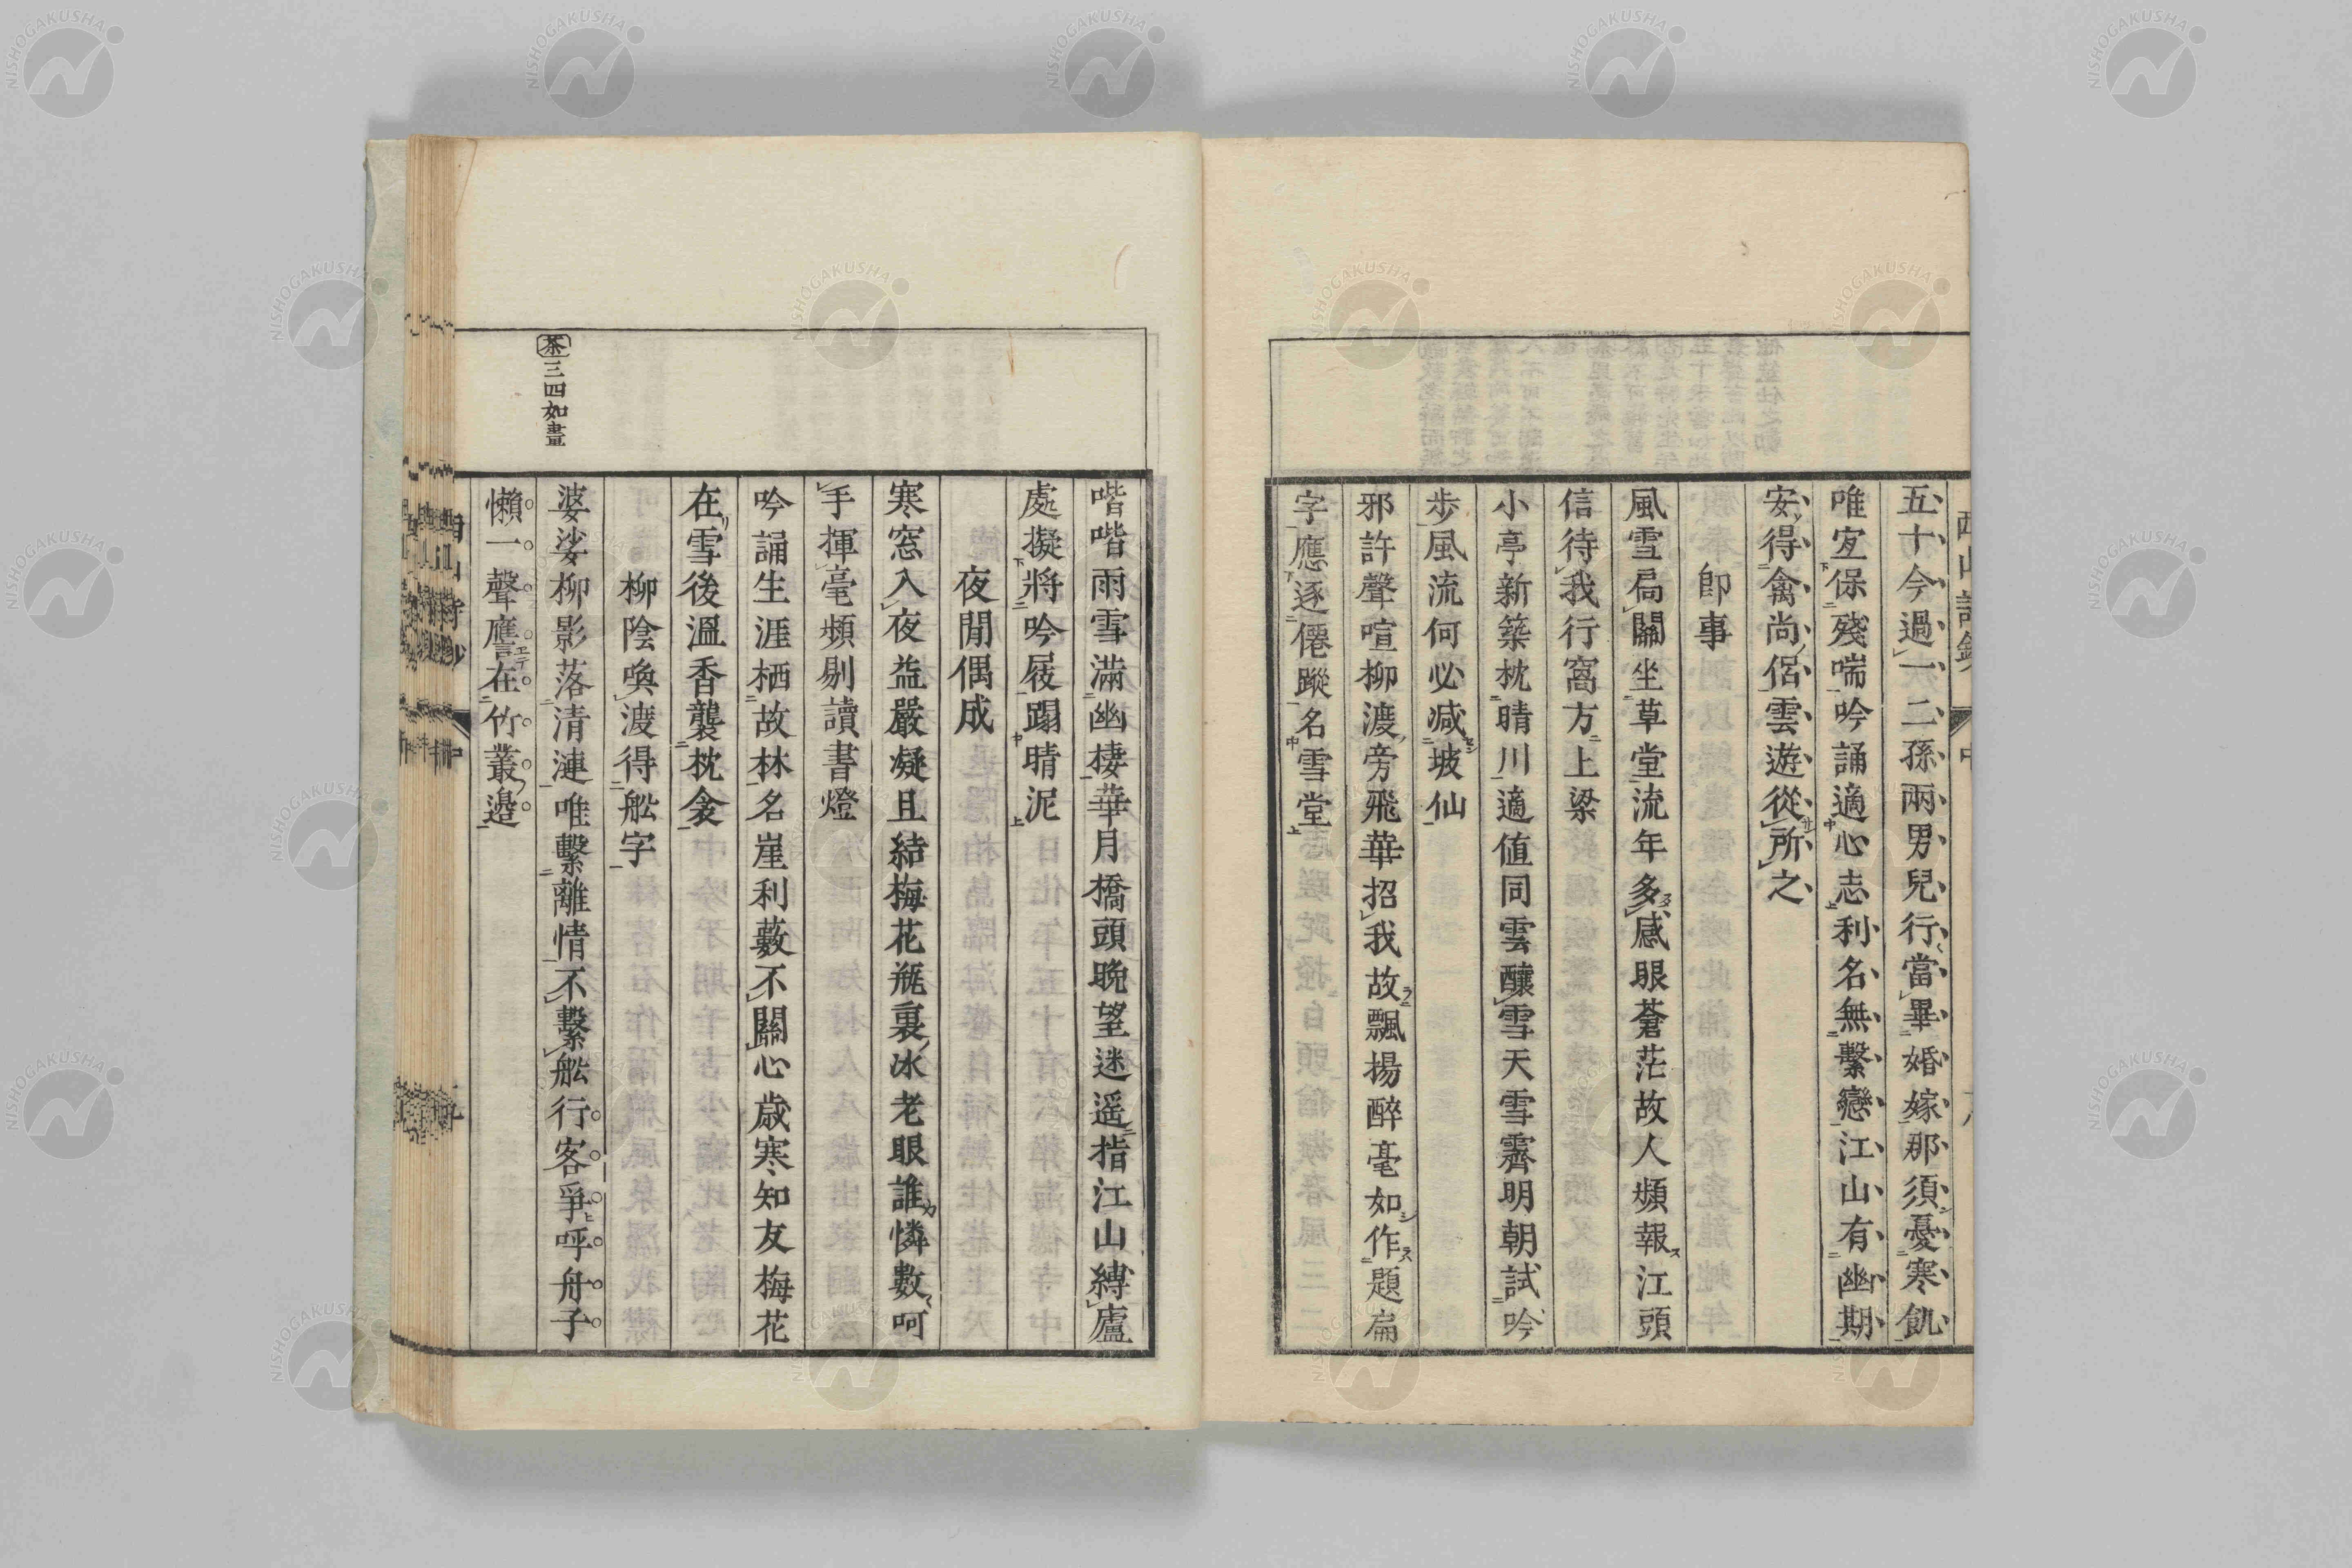 五十今過一二孫兩男兒行當畢婚嫁那須憂寒飢
唯宜保殘喘吟誦適心志利名無繫戀江山有幽期
安得禽尚侶雲遊從所之
卽事
風雪局關坐草堂流年多感眼蒼茫故人頻報江頭
信待我行窩方上梁
小亭新築枕晴川適値同雲釀雪天雪霽明朝試吟
步風流何必減坡仙
邪許聲喧柳渡旁飛華招我故飄揚醉毫如作題扁
字應逐僊蹤名雪堂
喈喈雨雪滿幽棲華月橋頭晚望迷遥指江山縛廬
處擬將吟屐蹋晴泥
夜閒偶成
寒窓入夜益嚴凝且結梅花瓶裏冰老眼誰憐數呵
手揮毫頻剔讀書燈
吟誦生涯栖故林名崖利藪不關心歲寒知友梅花
在雪後溫香襲枕衾
柳陰喚渡得舩字
茶三四如畫
婆娑柳影落清漣唯繫離情不繫舩行客爭呼舟子
懶一聲譍在竹叢邉
NISHOGAKUSHA